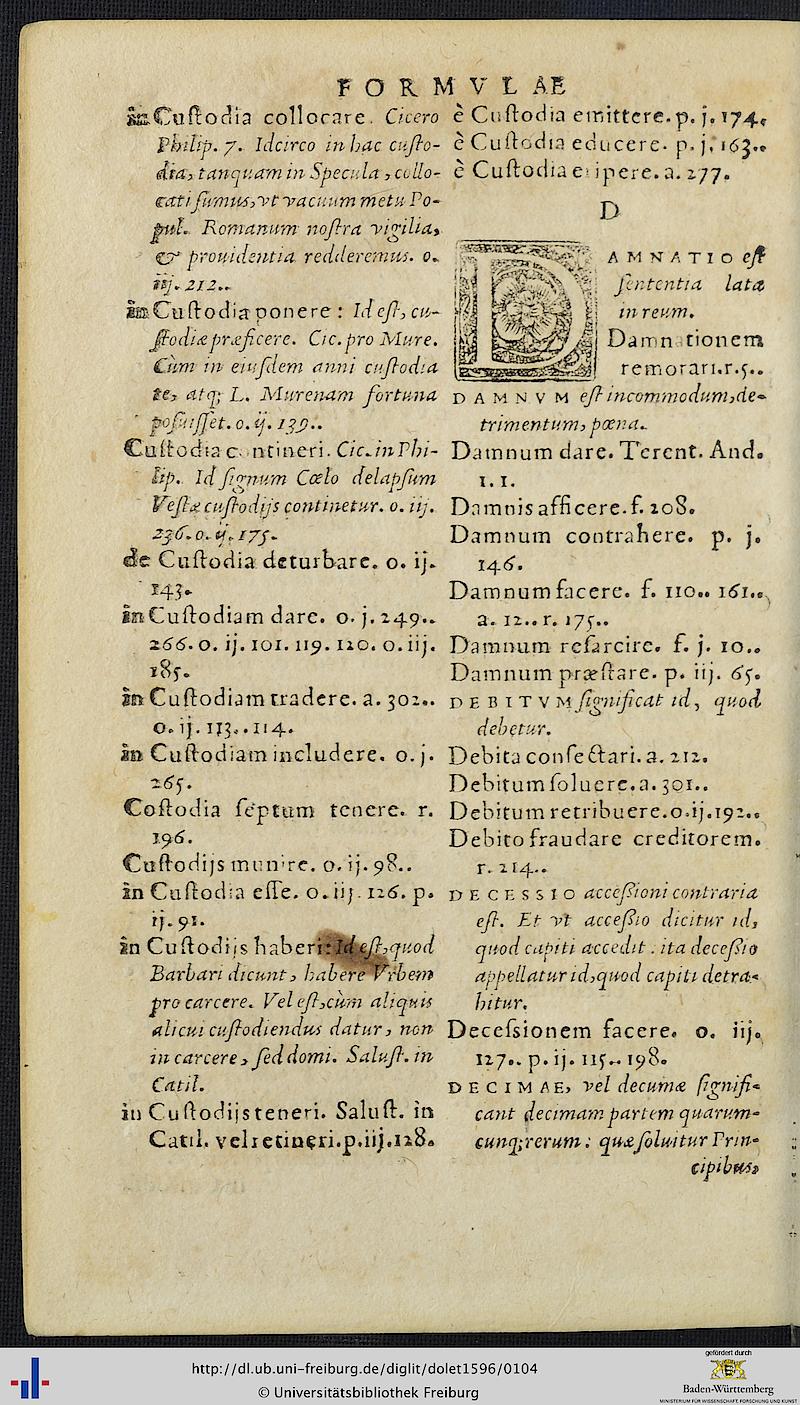 FORMVLAE
in Cuſtodia collocare. Cicero
Philip. 7. Idcirco in hac cuſto-
dia, tanquam in Specula, collo-
cati ſumus, vt vacuum metu Po-
pul. Romanum noſtra vigilia,
& prouidentia redderemus. o.
iij. 212..
in Cuſtodia ponere : Id eſt, cu-
ſtodiæ præficere. Cic. pro Mure.
Cùm in eiuſdem anni cuſtodia
te, atq; L. Murenam fortuna
poſuiſſet. o. ij. 139..
Cuſtodia contineri. Cic. in Phi-
lip. Id ſignum Cœlo delapſum
Veſtæ cuſtodijs continetur. o. iij.
236. o. ij. 175.
de Cuſtodia deturbare. o. ij.
143.
in Cuſtodiam dare. o. j. 249..
266. o. ij. 101. 119. 120. o. iij.
185.
in Cuſtodiam tradere. a. 302..
o. ij. 113.. 114.
in Cuſtodiam includere. o. j.
265.
Coſtodia ſeptum tenere. r.
196.
Cuſtodijs munire. o. ij. 98..
in Cuſtodia eſſe. o. iij. 126. p.
ij. 91.
in Cuſtodijs haberi: Id eſt, quod
Barbari dicunt, habere Vrbem
pro carcere. Vel eſt, cùm aliquis
alicui cuſtodiendus datur, non
in carcere, ſed domi. Saluſt. in
Catil.
in Cuſtodijs teneri. Saluſt. in
Catil. vel retineri. p. iij. 128.
è Cuſtodia emittere. p. j. 174.
è Cuſtodia educere. p. j. 163..
è Cuſtodia eripere. a. 277.
D
DAMNATIO eſt
ſententia lata
in reum.
Damnationem
remorari. r. 5..
DAMNVM eſt incommodum, de-
trimentum, pœna.
Damnum dare. Terent. And.
1. 1.
Damnis afficere. f. 208.
Damnum contrahere. p. j.
146.
Damnum facere. f. 110.. 161..
a. 12.. r. 175..
Damnum reſarcire. f. j. 10..
Damnum præſtare. p. iij. 65.
DEBITVM ſignificat id, quod
debetur.
Debita conſectari. a. 212.
Debitum ſoluere. a. 301..
Debitum retribuere. o. ij. 192..
Debito fraudare creditorem.
r. 214..
DECESSIO acceſſioni contraria
eſt. Et vt acceſſio dicitur id,
quod capiti accedit : ita deceſſio
appellatur id, quod capiti detra-
hitur.
Deceſsionem facere. o. iij.
127.. p. ij. 115.. 198.
DECIMAE, vel decumæ ſignifi-
cant decimam partem quarum-
cunq; rerum : quæ ſoluitur Prin-
cipibus,
http://dl.ub.uni-freiburg.de/diglit/dolet1596/0104
© Universitätsbibliothek Freiburg
gefördert durch
Baden-Württemberg
MINISTERIUM FÜR WISSENSCHAFT, FORSCHUNG UND KUNST